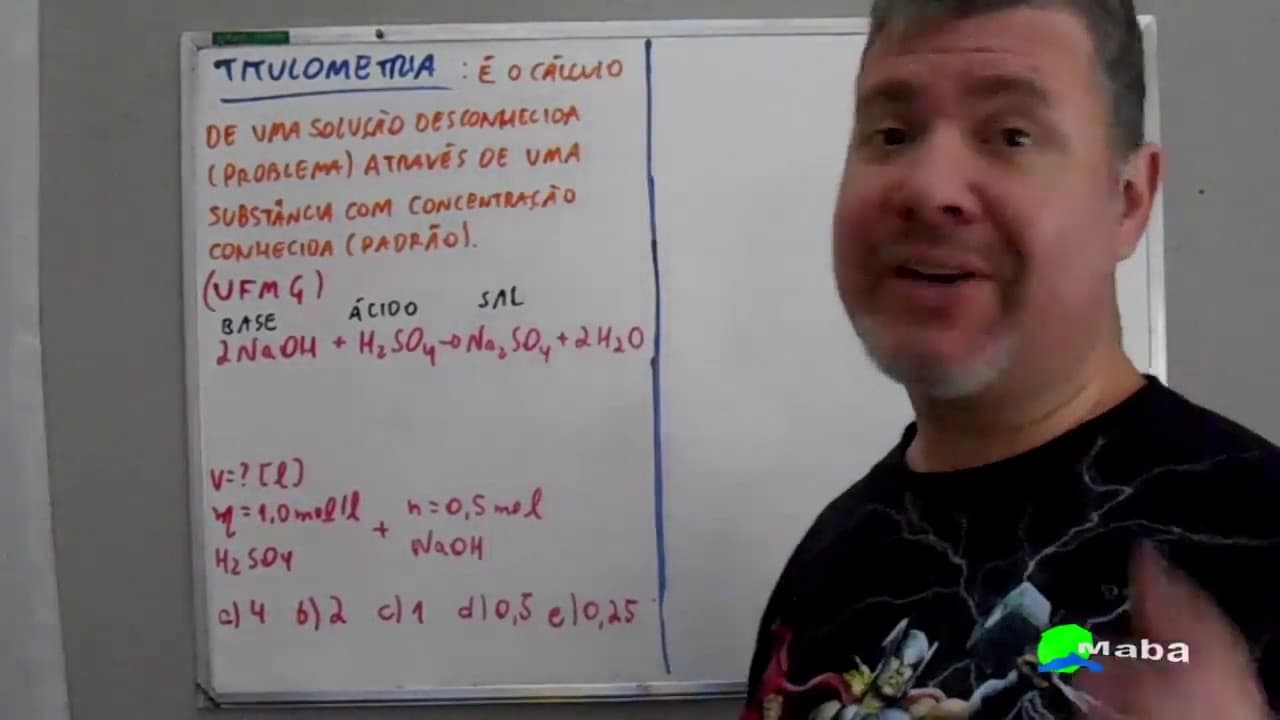 TITULOMETRIA : É O CÁLCULO
DE UMA SOLUÇÃO DESCONHECIDA
(PROBLEMA) ATRAVÉS DE UMA
SUBSTÂNCIA COM CONCENTRAÇÃO
CONHECIDA (PADRÃO).
(UFMG)
BASE ÁCIDO SAL
2NaOH + H₂SO₄→Na₂SO₄+2H₂O
V=? [l]
η=1,0mol/l + n=0,5mol
H₂SO₄ NaOH
a)4 b)2 c)1 d)0,5 e)0,25
maba